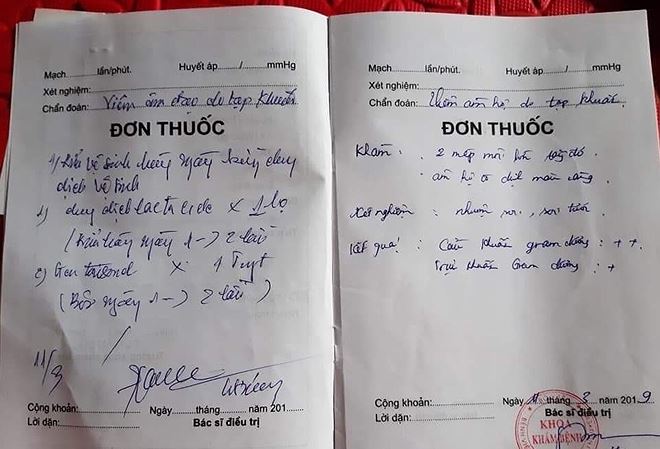 Mạch..........lần/phút. Huyết áp......./.......mmHg
Xét nghiệm:
Chẩn đoán: Viêm âm đạo do tạp khuẩn
ĐƠN THUỐC
1) Rửa vệ sinh hàng ngày bằng dung
dịch vệ sinh
2) dung dịch x 1 lọ
(Rửa hàng ngày 1 -> 2 lần)
3) Gen x 1 Tuýt
(Bôi ngày 1 -> 2 lần)
11/3
Cộng khoản:
Ngày.......tháng........ năm 201...
Lời dặn:
Bác sĩ điều trị
Mạch..........lần/phút. Huyết áp......./.......mmHg
Xét nghiệm:
Chẩn đoán: Viêm âm hộ do tạp khuẩn
ĐƠN THUỐC
Khám : 2 mép môi lớn đỏ
âm hộ có dịch màu vàng
Xét nghiệm : nhuộm soi, soi tươi
Kết quả : Cầu khuẩn gram dương : + +
Trực khuẩn Gram dương : +
Cộng khoản:
Ngày 11 tháng 3 năm 2019
Lời dặn:
Bác sĩ điều trị
KHOA
KHÁM BỆNH